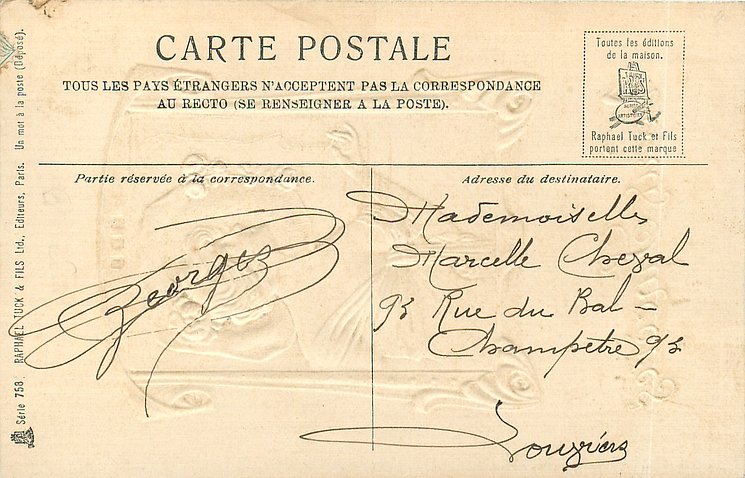 CARTE POSTALE
TOUS LES PAYS ÉTRANGERS N'ACCEPTENT PAS LA CORRESPONDANCE
AU RECTO (SE RENSEIGNER A LA POSTE).
Toutes les éditions
de la maison.
Raphael Tuck et Fils
portent cette marque
Partie réservée à la correspondance.
Adresse du destinataire.
Georges
Mademoiselle
Marcelle Cheval
93 Rue du Bal-
Champetre 93
Louviers
Série 758. RAPHAEL TUCK & FILS Ltd., Editeurs, Paris. Un mot à la poste (Déposé).